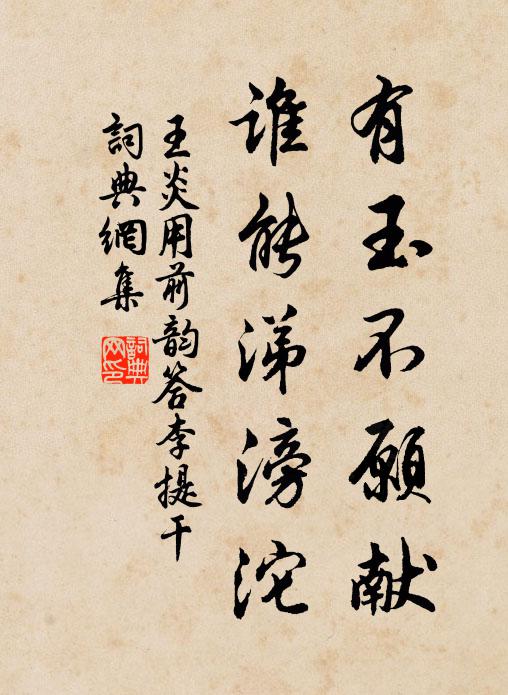 有玉不愿献
谁能涕滂沱
王炎用前韵答李提干
词典網集
詞典網印